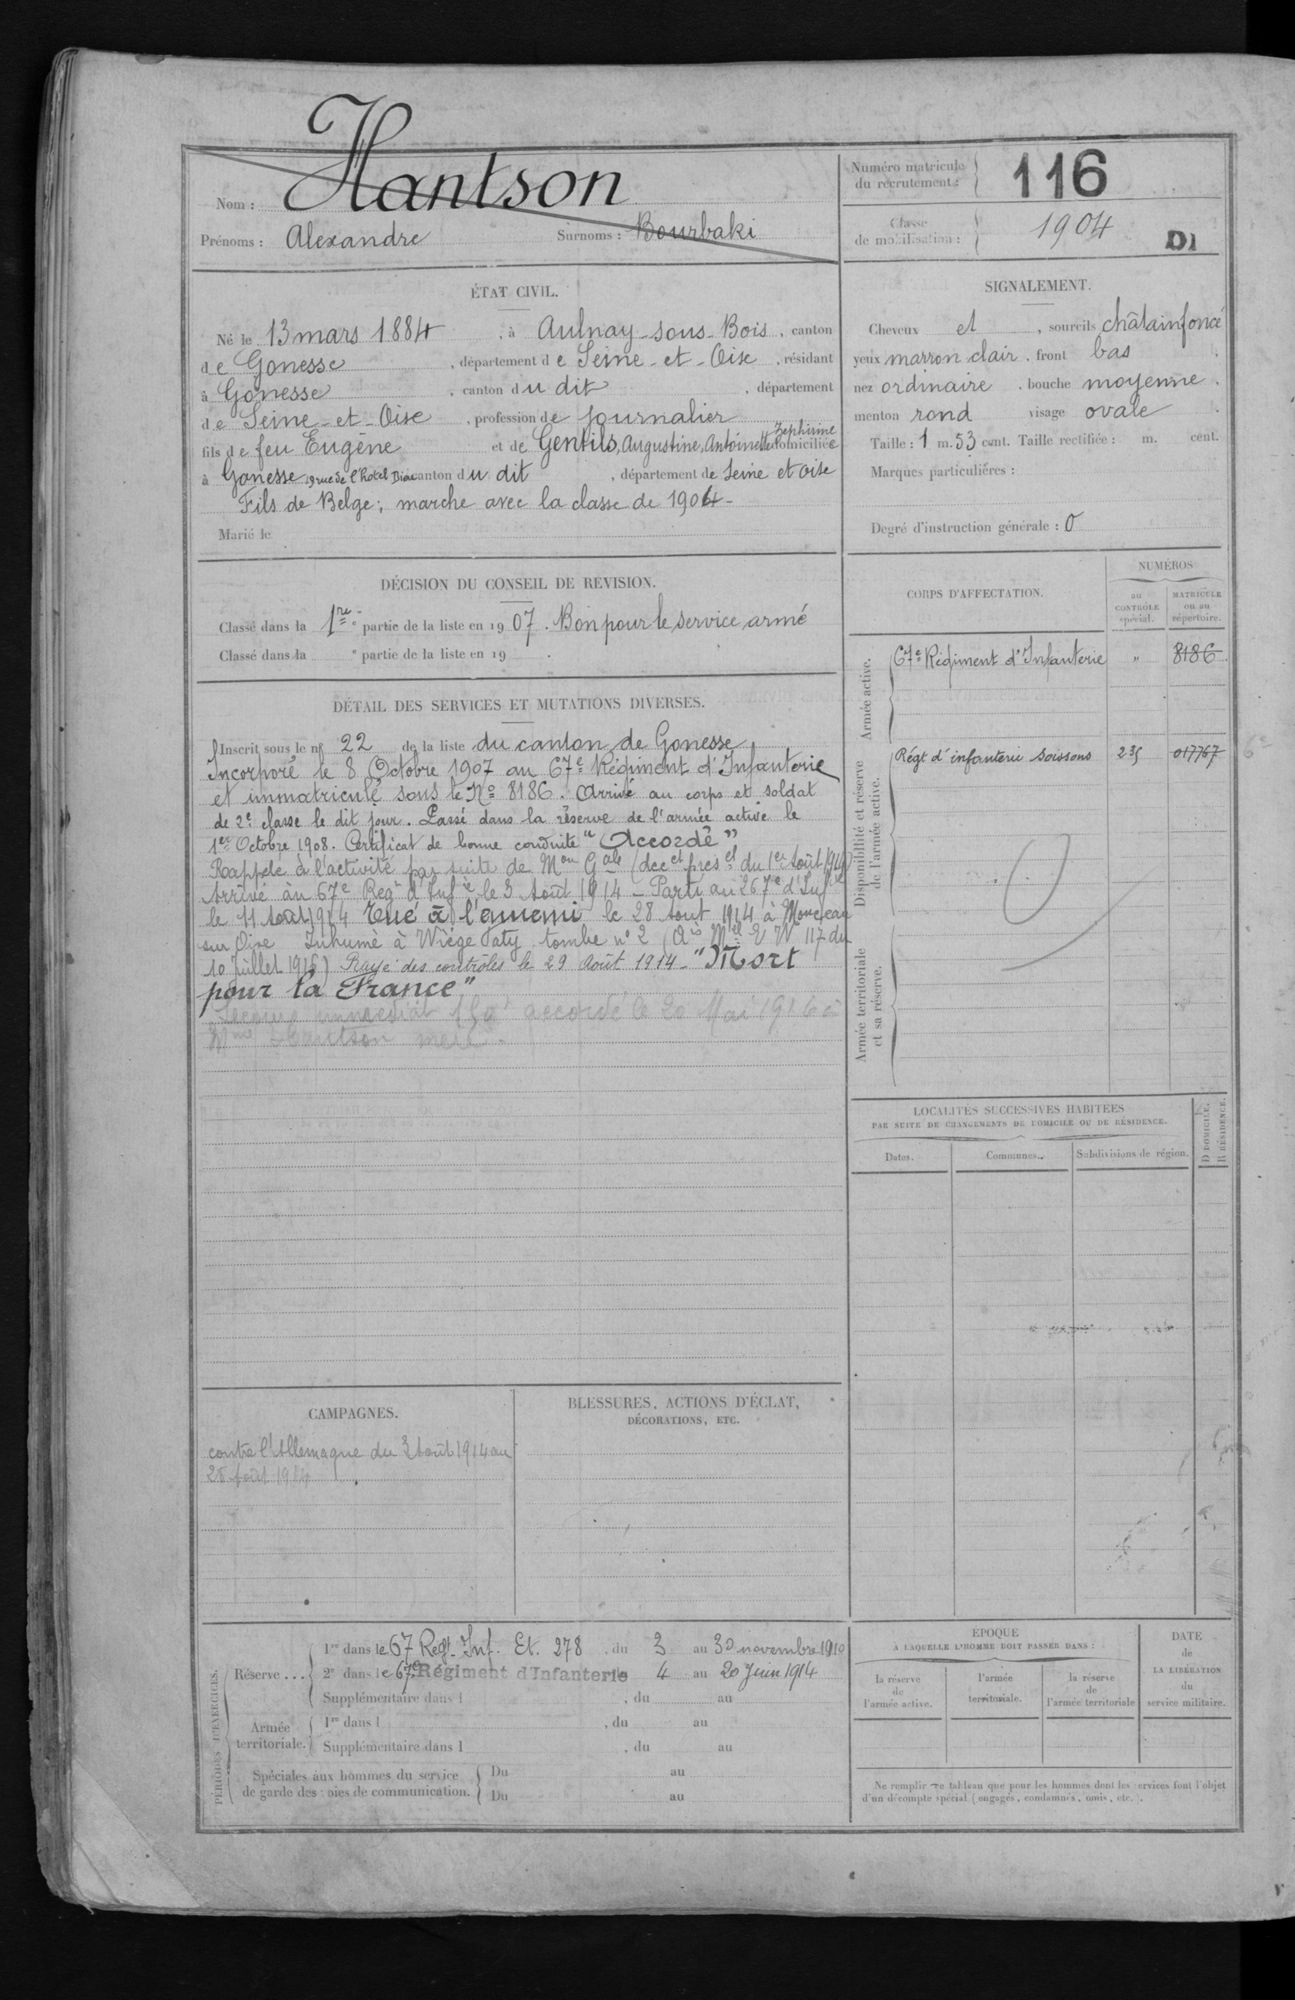 Nom : Hantson
Prénoms : Alexandre Surnoms : Bourbaki
Numéro matricule du recrutement : 116
Classe de mobilisation : 1904
DI
ÉTAT CIVIL.
Né le 13 mars 1884, à Aulnay-sous-Bois, canton
de Gonesse, département de Seine-et-Oise, résidant
à Gonesse, canton du dit, département
de Seine-et-Oise, profession de journalier
fils de feu Eugène et de Gentils, Augustine, Antoinette Zéphirine domiciliée
à Gonesse 19 rue de l'hotel Dieu canton du dit, département de Seine et Oise
Fils de Belge; marche avec la classe de 1904-
Marié le
SIGNALEMENT.
Cheveux et, sourcils châtain foncé
yeux marron clair. front bas
nez ordinaire. bouche moyenne.
menton rond visage ovale
Taille : 1 m. 53 cent. Taille rectifiée : m. cent.
Marques particulières :
Degré d'instruction générale : 0
DÉCISION DU CONSEIL DE RÉVISION.
Classé dans la 1re partie de la liste en 1907. Bon pour le service armé
Classé dans la " partie de la liste en 19 .
CORPS D'AFFECTATION.
NUMÉROS
au CONTRÔLE spécial.
MATRICULE ou au répertoire.
Armée active.
67e Régiment d'Infanterie " 8186
Disponibilité et réserve de l'armée active.
Régt d'infanterie Soissons 235 017767
Armée territoriale et sa réserve.
DÉTAIL DES SERVICES ET MUTATIONS DIVERSES.
Inscrit sous le no 22 de la liste du canton de Gonesse
Incorporé le 8 Octobre 1907 au 67e Régiment d'Infanterie
et immatriculé sous le No 8186. Arrivé au corps et soldat
de 2e classe le dit jour. Passé dans la réserve de l'armée active le
1er Octobre 1908. Certificat de bonne conduite "Accordé"
Rappelé à l'activité par suite de Mon Gale (décet présel du 1er Août 1914)
Arrivé au 67e Regt d'Infie le 3 Août 1914 - Parti au 267e d'Infie
le 11 Août 1914 Tué à l'ennemi le 28 Août 1914 à Monceau
sur Oise Inhumé à Wiège Faty tombe no 2 (Avis Mel V W 117 du
10 Juillet 1915) Rayé des contrôles le 29 Août 1914 - "Mort
pour la France"
Secours immédiat 150f accordé le 20 Mai 1916 à
Mme Hantson mère.
LOCALITÉS SUCCESSIVES HABITÉES
PAR SUITE DE CHANGEMENTS DE DOMICILE OU DE RÉSIDENCE.
Dates. Communes. Subdivisions de région. D DOMICILE. R RÉSIDENCE.
CAMPAGNES.
contre l'Allemagne du 3 Août 1914 au
28 Août 1914
BLESSURES, ACTIONS D'ÉCLAT,
DÉCORATIONS, ETC.
PÉRIODES D'EXERCICES.
Réserve ... 1re dans le 67 Regt. Inf. Et. 278, du 3 au 30 novembre 1910
2e dans le 67e Régiment d'Infanterie 4 au 20 Juin 1914
Supplémentaire dans l , du au
Armée territoriale. 1re dans l , du au
Supplémentaire dans l , du au
Spéciales aux hommes du service de garde des voies de communication. Du au
Du au
ÉPOQUE
A LAQUELLE L'HOMME DOIT PASSER DANS :
la réserve de l'armée active.
l'armée territoriale.
la réserve de l'armée territoriale
DATE de LA LIBÉRATION du service militaire.
Ne remplir ce tableau que pour les hommes dont les services font l'objet
d'un décompte spécial (engagés, condamnés, omis, etc.).